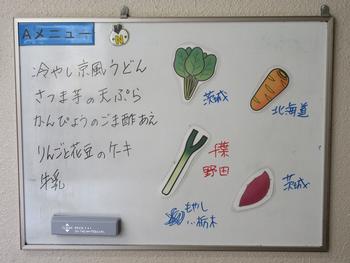 Aメニュー
冷やし京風うどん
さつま芋の天ぷら
かんぴょうのごま酢あえ
りんごと花豆のケーキ
牛乳
茨城
北海道
千葉
野田
茨城
もやし
栃木